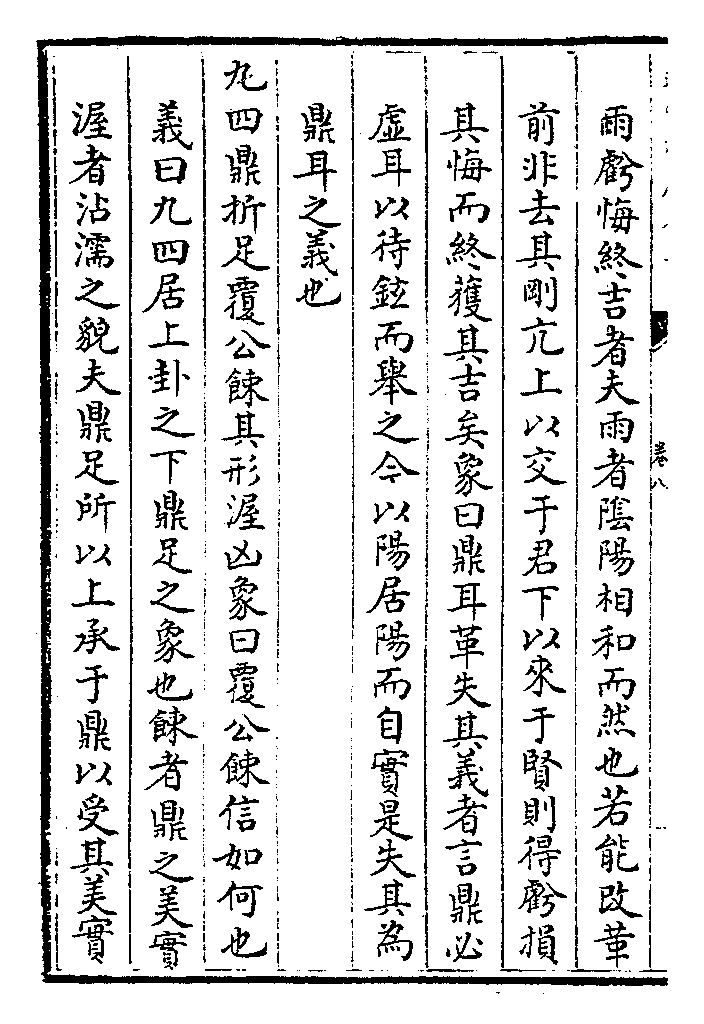 雨虧悔終吉者夫雨者陰陽相和而然也若能改革
前非去其剛亢上以交于君下以來于賢則得虧損
其悔而終獲其吉矣象曰鼎耳革失其義者言鼎必
虛耳以待鉉而舉之今以陽居陽而自實是失其為
鼎耳之義也
九四鼎折足覆公餗其形渥凶象曰覆公餗信如何也
義曰九四居上卦之下鼎足之象也餗者鼎之美實
渥者沾濡之貌夫鼎足所以上承于鼎以受其美實
卷八